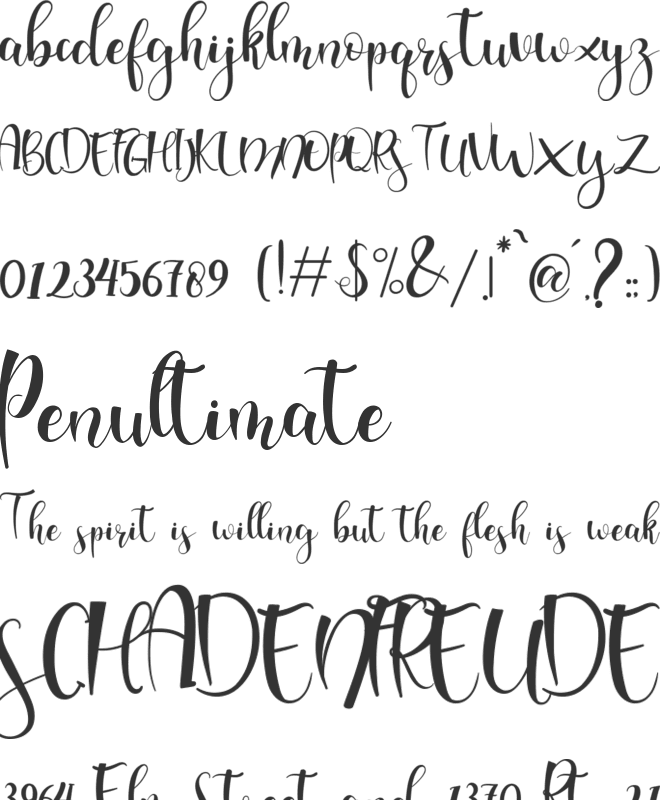 abcdefghijklmnopqrstuvwxyz
ABCDEFGHIJKLMNOPQRSTUVWXYZ
0123456789 (!#$%&/.|*`@´,?::)
Penultimate
The spirit is willing but the flesh is weak
SCHADENFREUDE
3964 Elm Street and 1370 Rt. 21